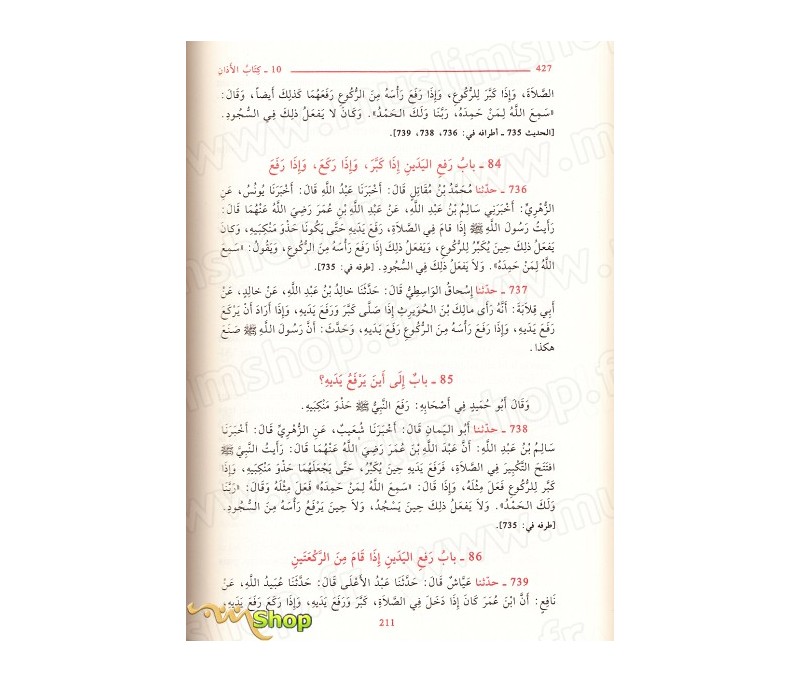 427 10 ـ كِتَابُ الأَذانِ
الصَّلاَةَ، وَإِذَا كَبَّرَ لِلرُّكُوعِ، وَإِذَا رَفَعَ رَأْسَهُ مِنَ الرُّكُوعِ رَفَعَهُمَا كَذلِكَ أَيضاً، وَقَالَ:
«سَمِعَ اللَّهُ لِمَنْ حَمِدَهُ، رَبَّنَا وَلَكَ الحَمْدُ». وَكَانَ لا يَفعَلُ ذلِكَ فِي السُّجُودِ.
[الحديث 735 ـ أطرافه في: 736، 738، 739].
84 ـ بابُ رَفعِ اليَدَينِ إِذَا كَبَّرَ، وَإِذَا رَكَعَ، وَإِذَا رَفَعَ
736 ـ حدّثنا مُحَمَّدُ بْنُ مُقَاتِلٍ قَالَ: أَخْبَرَنَا عَبْدُ اللَّهِ قَالَ: أَخْبَرَنَا يُونُسُ، عَنِ
الزُّهْرِيِّ: أَخْبَرَنِي سَالِمُ بْنُ عَبْدِ اللَّهِ، عَنْ عَبْدِ اللَّهِ بْنِ عُمَرَ رَضِيَ اللَّهُ عَنْهُمَا قَالَ:
رَأَيتُ رَسُولَ اللَّهِ ﷺ إِذَا قامَ فِي الصَّلاَةِ، رَفَعَ يَدَيهِ حَتَّى يَكُونَا حَذْوَ مَنْكِبَيهِ، وَكانَ
يَفعَلُ ذلِكَ حِينَ يُكَبِّرُ لِلرُّكُوعِ، وَيَفعَلُ ذلِكَ إِذَا رَفَعَ رَأْسَهُ مِنَ الرُّكُوعِ، وَيَقُولُ: «سَمِعَ
اللَّهُ لِمَنْ حَمِدَهُ». وَلاَ يَفعَلُ ذلِكَ فِي السُّجُودِ. [طرفه في: 735].
737 ـ حدّثنا إِسْحاقُ الوَاسِطِيُّ قَالَ: حَدَّثَنَا خالِدُ بْنُ عَبْدِ اللَّهِ، عَنْ خالِدٍ، عَنْ
أَبِي قِلاَبَةَ: أَنَّهُ رَأَى مالِكَ بْنَ الحُوَيرِثِ إِذَا صَلَّى كَبَّرَ وَرَفَعَ يَدَيهِ، وَإِذَا أَرَادَ أَنْ يَرْكَعَ
رَفَعَ يَدَيهِ، وَإِذَا رَفَعَ رَأْسَهُ مِنَ الرُّكُوعِ رَفَعَ يَدَيهِ، وَحَدَّثَ: أَنَّ رَسُولَ اللَّهِ ﷺ صَنَعَ
هكذا.
85 ـ بابٌ إِلَى أَينَ يَرْفَعُ يَدَيهِ؟
وَقَالَ أَبُو حُمَيدٍ فِي أَصْحَابِهِ: رَفَعَ النَّبِيُّ ﷺ حَذْوَ مَنْكِبَيهِ.
738 ـ حدّثنا أَبُو اليَمانِ قَالَ: أَخْبَرَنَا شُعَيبٌ، عَنِ الزُّهْرِيِّ قَالَ: أَخْبَرَنَا
سَالِمُ بْنُ عَبْدِ اللَّهِ: أَنَّ عَبْدَ اللَّهِ بْنَ عُمَرَ رَضِيَ اللَّهُ عَنْهُمَا قَالَ: رَأَيتُ النَّبِيَّ ﷺ
افتَتَحَ التَّكْبِيرَ فِي الصَّلاَةِ، فَرَفَعَ يَدَيهِ حِينَ يُكَبِّرُ، حَتَّى يَجْعَلَهُمَا حَذْوَ مَنْكِبَيهِ، وَإِذَا
كَبَّرَ لِلرُّكُوعِ فَعَلَ مِثْلَهُ، وَإِذَا قَالَ: «سَمِعَ اللَّهُ لِمَنْ حَمِدَهُ» فَعَلَ مِثْلَهُ وَقَالَ: «رَبَّنَا
وَلَكَ الحَمْدُ». وَلاَ يَفعَلُ ذلِكَ حِينَ يَسْجُدُ، وَلاَ حِينَ يَرْفَعُ رَأْسَهُ مِنَ السُّجُودِ.
[طرفه في: 735].
86 ـ بابُ رَفعِ اليَدَينِ إِذَا قَامَ مِنَ الرَّكْعَتَينِ
739 ـ حدّثنا عَيَّاشٌ قَالَ: حَدَّثَنَا عَبْدُ الأَعْلَى قَالَ: حَدَّثَنَا عُبَيدُ اللَّهِ، عَنْ
نَافِعٍ: أَنَّ ابْنَ عُمَرَ كَانَ إِذَا دَخَلَ فِي الصَّلاَةِ، كَبَّرَ وَرَفَعَ يَدَيهِ، وَإِذَا رَكَعَ رَفَعَ يَدَيهِ،
211
Shop
www.muslimshop.fr